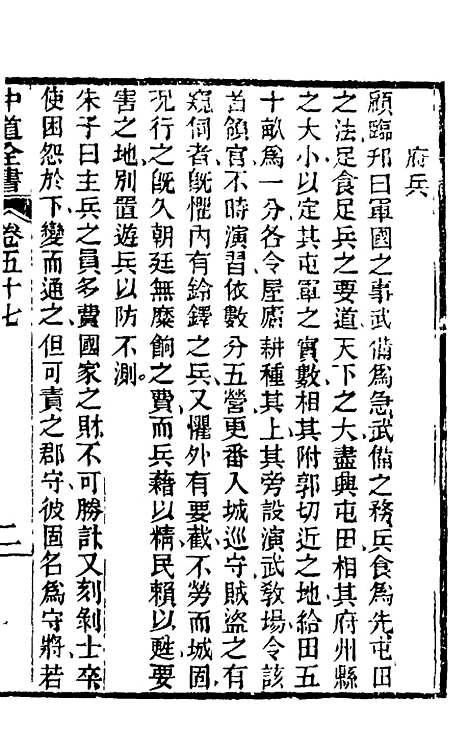 府兵
顧臨邦曰軍國之事武備爲急武備之務兵食爲先屯田
之法足食足兵之要道天下之大盡興屯田相其府州縣
之大小以定其屯軍之實數相其附郭切近之地給田五
十畝爲一分各令屋廬耕種其上其旁設演武教場令該
首領官不時演習依數分五營更番入城巡守賊盜之有
窺伺者旣懼內有鈴鐸之兵又懼外有要截不勞而城固
況行之旣久朝廷無糜餉之費而兵藉以精民賴以甦要
害之地別置遊兵以防不測
朱子曰主兵之員多費國家之財不可勝計又刻剝士卒
使困怨於下變而通之但可責之郡守彼固名爲守將若
中道全書 卷五十七 二